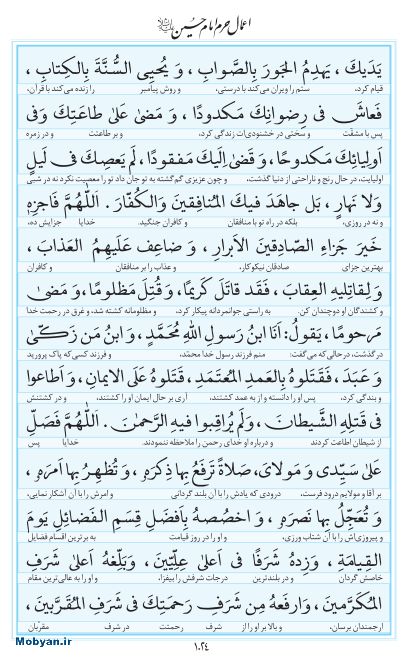 اعمال حرم امام حسین
یَدَیكَ ، یَهدِمُ الجَورَ بِالصَّوابِ ، وَ یُحیِی السُّنَّةَ بِالكِتابِ ،
قیام کرد، ستم را ویران می‌کند با درستی، و روش پیامبر را زنده می‌کند با قرآن،
فَعاشَ فی رِضوانِكَ مَكدودًا ، وَ مَضیٰ عَلیٰ طاعَتِكَ وَفی
پس با مشقّت و سختی در خشنودی‌ات زندگی کرد، و بر طاعتت و در زمره
اَولِیائِكَ مَكدوحًا ، وَ قَضیٰ اِلَیكَ مَفقودًا ، لَم یَعصِكَ فی لَیلٍ
اولیایت، در حال رنج و ناراحتی از دنیا گذشت، و چون عزیزی گم‌گشته به تو جان داد تو را معصیت نکرد نه در شبی
وَلا نَهارٍ ، بَل جاهَدَ فیكَ المُنافِقینَ وَالكُفّارَ . اَللّٰهُمَّ فَاجزِهِ
و نه در روزی، بلکه در راه تو با منافقان و کافران جنگید. خدایا جزایش ده،
خَیرَ جَزاءِ الصّادِقینَ الاَبرارِ ، وَ ضاعِف عَلَیهِمُ العَذابَ ،
بهترین جزای صادقان نیکوکار، و عذاب را بر منافقان و کافران
وَلِقاتِلیهِ العِقابَ ، فَقَد قاتَلَ كَریمًا ، وَ قُتِلَ مَظلومًا ، وَ مَضیٰ
و کشندگان او دوچندان کن. به راستی جوانمردانه پیکار کرد، و مظلومانه کشته شد، و غرق در رحمت خدا
مَرحومًا ، یَقولُ: اَنَا ابنُ رَسولِ اللهِ مُحَمَّدٍ ، وَ ابنُ مَن زَكّیٰ
درگذشت، درحالی‌که می‌گفت: منم فرزند رسول خدا محمّد، و فرزند کسی که پاک پرورید
وَ عَبَدَ ، فَقَتَلوهُ بِالعَمدِ المُعتَمَدِ ، قَتَلوهُ عَلَی الایمانِ ، وَ اَطاعوا
و بندگی کرد، پس او را دانسته و از به عمد کشتند، آری بر حال ایمان او را کشتند، و در کشتنش
فی قَتلِهِ الشَّیطانَ ، وَلَم یُراقِبوا فیهِ الرَّحمٰنَ . اَللّٰهُمَّ فَصَلِّ
از شیطان اطاعت کردند و درباره او خدای رحمن را ملاحظه ننمودند. خدایا پس
عَلیٰ سَیِّدی وَ مَولایَ ، صَلاةً تَرفَعُ بِها ذِكرَهٗ ، وَ تُظهِرُ بِها اَمرَهٗ ،
بر آقا و مولایم درود فرست، درودی که یادش را با آن بلند گردانی و امرش را با آن آشکار نمایی،
وَ تُعَجِّلُ بِها نَصرَهٗ ، وَ اخصُصهُ بِاَفضَلِ قِسَمِ الفَضائِلِ یَومَ
و پیروزی‌اش را با آن شتاب ورزی. و او را در روز قیامت به برترین اقسام فضایل
القِیامَةِ ، وَ زِدهُ شَرَفًا فی اَعلیٰ عِلِّیّینَ ، وَ بَلِّغهُ اَعلیٰ شَرَفِ
خاصش گردان و در بلندترین درجات شرفش را بیفزا، و او را به عالی‌ترین مقام
المُكَرَّمینَ ، وَ ارفَعهُ مِن شَرَفِ رَحمَتِكَ فی شَرَفِ المُقَرَّبینَ ،
ارجمندان برسان، و بالا بر او را از شرف رحمتت در شرف مقرّبان
۱۰۲۴
Mobyan.ir